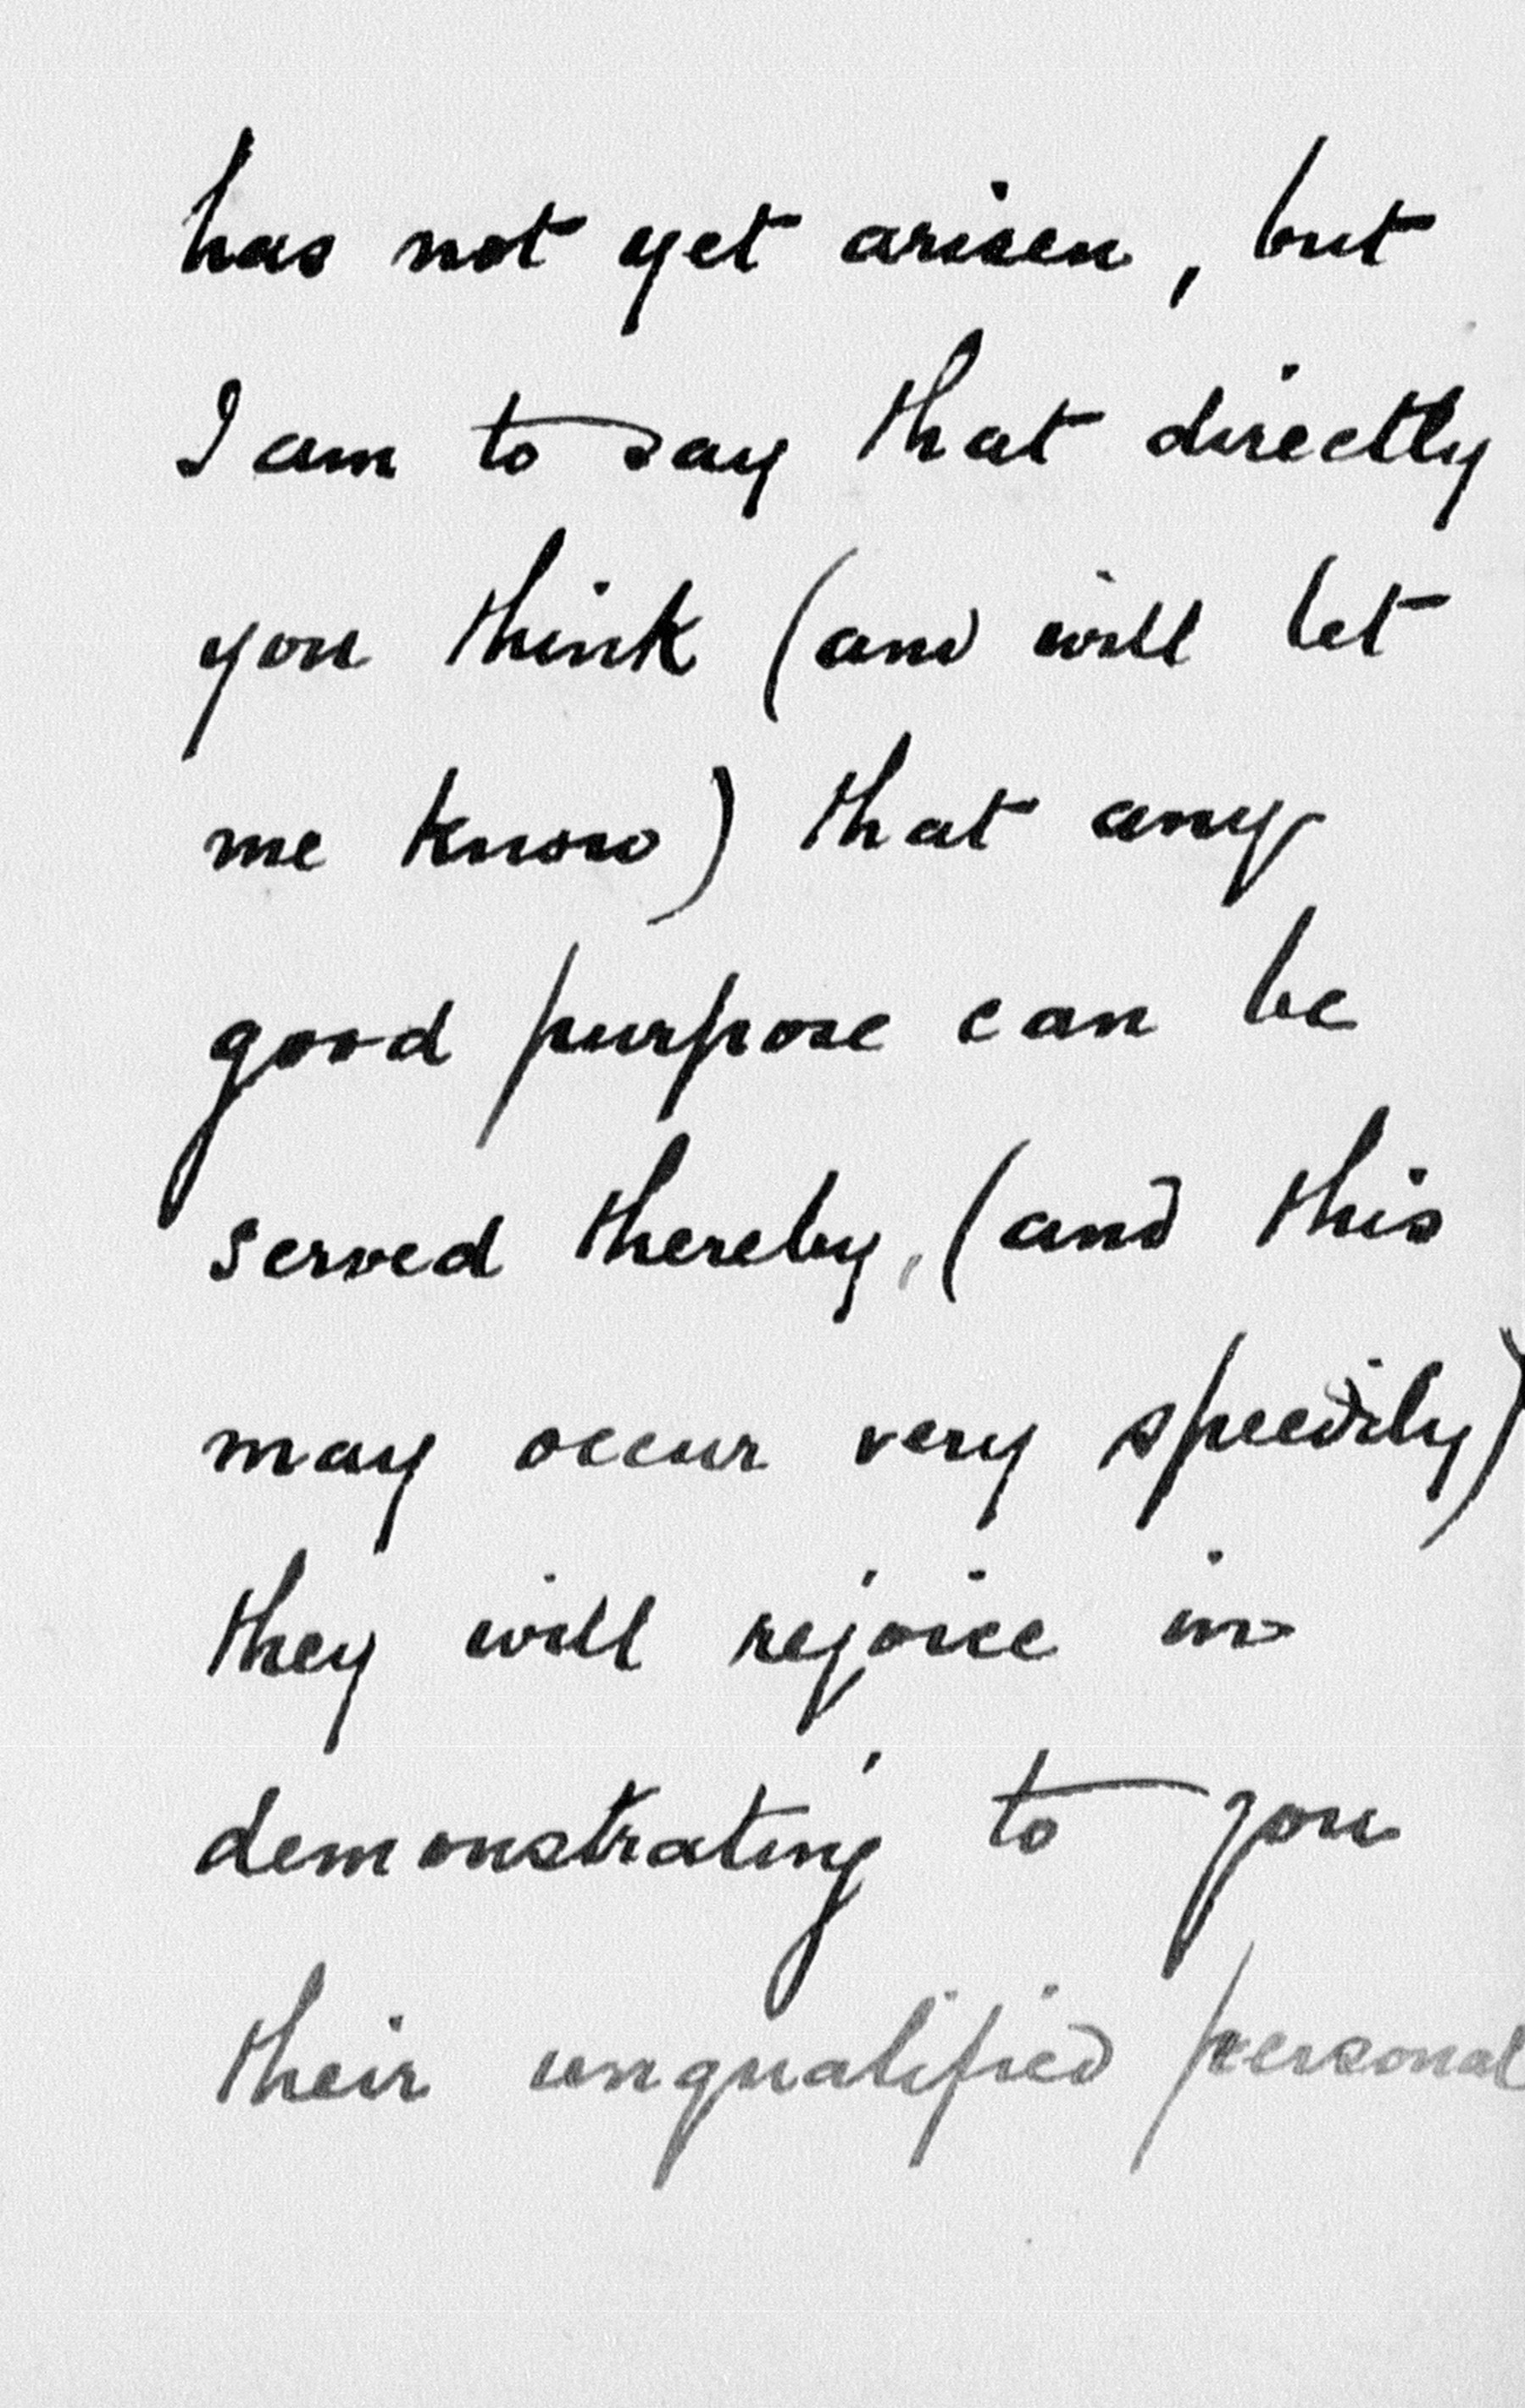 has not yet arisen, but
I am to say that directly
you think (and will let
me know) that any
good purpose can be
served thereby, (and this
may occur very speedily)
they will rejoice in
demonstrating to you
their unqualified personal